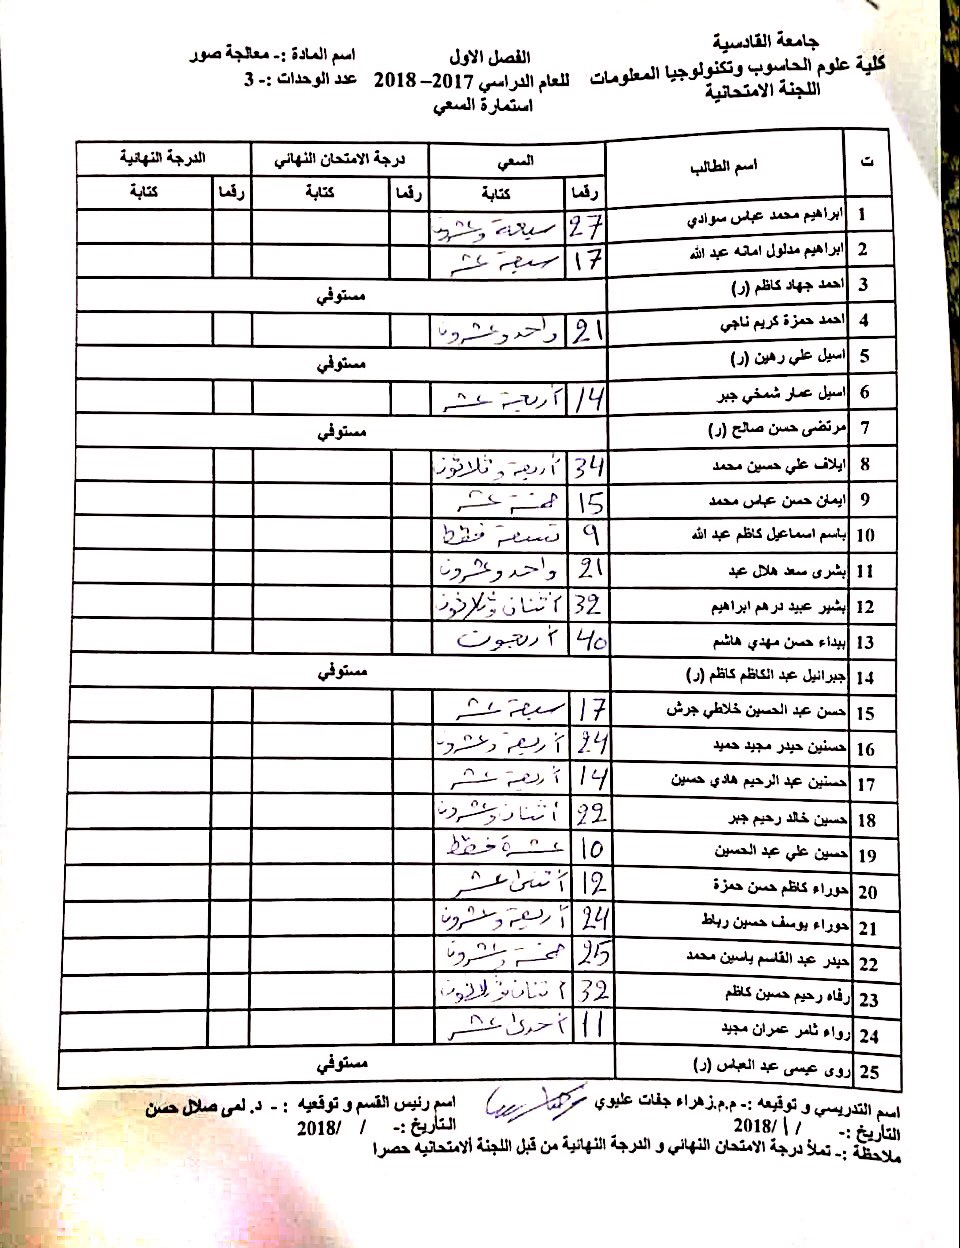 جامعة القادسية
كلية علوم الحاسوب وتكنولوجيا المعلومات
اللجنة الامتحانية
الفصل الاول
للعام الدراسي 2017– 2018
استمارة السعي
اسم المادة :- معالجة صور
عدد الوحدات :- 3
ت اسم الطالب السعي درجة الامتحان النهائي الدرجة النهائية
رقما كتابة رقما كتابة رقما كتابة
1 ابراهيم محمد عباس سوادي 27 سبعة وعشرون
2 ابراهيم مدلول امانه عبد الله 17 سبعة عشر
3 احمد جهاد كاظم (ر) مستوفي
4 احمد حمزة كريم ناجي 21 واحد وعشرون
5 اسيل علي رهين (ر) مستوفي
6 اسيل عمار شمخي جبر 14 أربعة عشر
7 مرتضى حسن صالح (ر) مستوفي
8 ايلاف علي حسين محمد 34 أربعة وثلاثون
9 ايمان حسن عباس محمد 15 خمسة عشر
10 باسم اسماعيل كاظم عبد الله 9 تسعة فقط
11 بشرى سعد هلال عبد 21 واحد وعشرون
12 بشير عبيد درهم ابراهيم 32 أثنان وثلاثون
13 بيداء حسن مهدي هاشم 40 أربعون
14 جبرائيل عبد الكاظم كاظم (ر) مستوفي
15 حسن عبد الحسين خلاطي جرش 17 سبعة عشر
16 حسنين حيدر مجيد حميد 24 أربعة وعشرون
17 حسنين عبد الرحيم هادي حسين 14 أربعة عشر
18 حسين خالد رحيم جبر 22 أثنان وعشرون
19 حسين علي عبد الحسين 10 عشرة فقط
20 حوراء كاظم حسن حمزة 12 أثنى عشر
21 حوراء يوسف حسين رباط 24 أربعة وعشرون
22 حيدر عبد القاسم ياسين محمد 25 خمسة وعشرون
23 رفاه رحيم حسين كاظم 32 أثنان وثلاثون
24 رواء ثامر عمران مجيد 11 أحدى عشر
25 روى عيسى عبد العباس (ر) مستوفي
اسم التدريسي و توقيعه :- م.م.زهراء جفات عليوي
التاريخ :- / 1/ 2018
اسم رئيس القسم و توقعيه :- د. لمى صلال حسن
التاريخ :- / / 2018
ملاحظة :- تملأ درجة الامتحان النهائي و الدرجة النهائية من قبل اللجنة ألامتحانيه حصرا